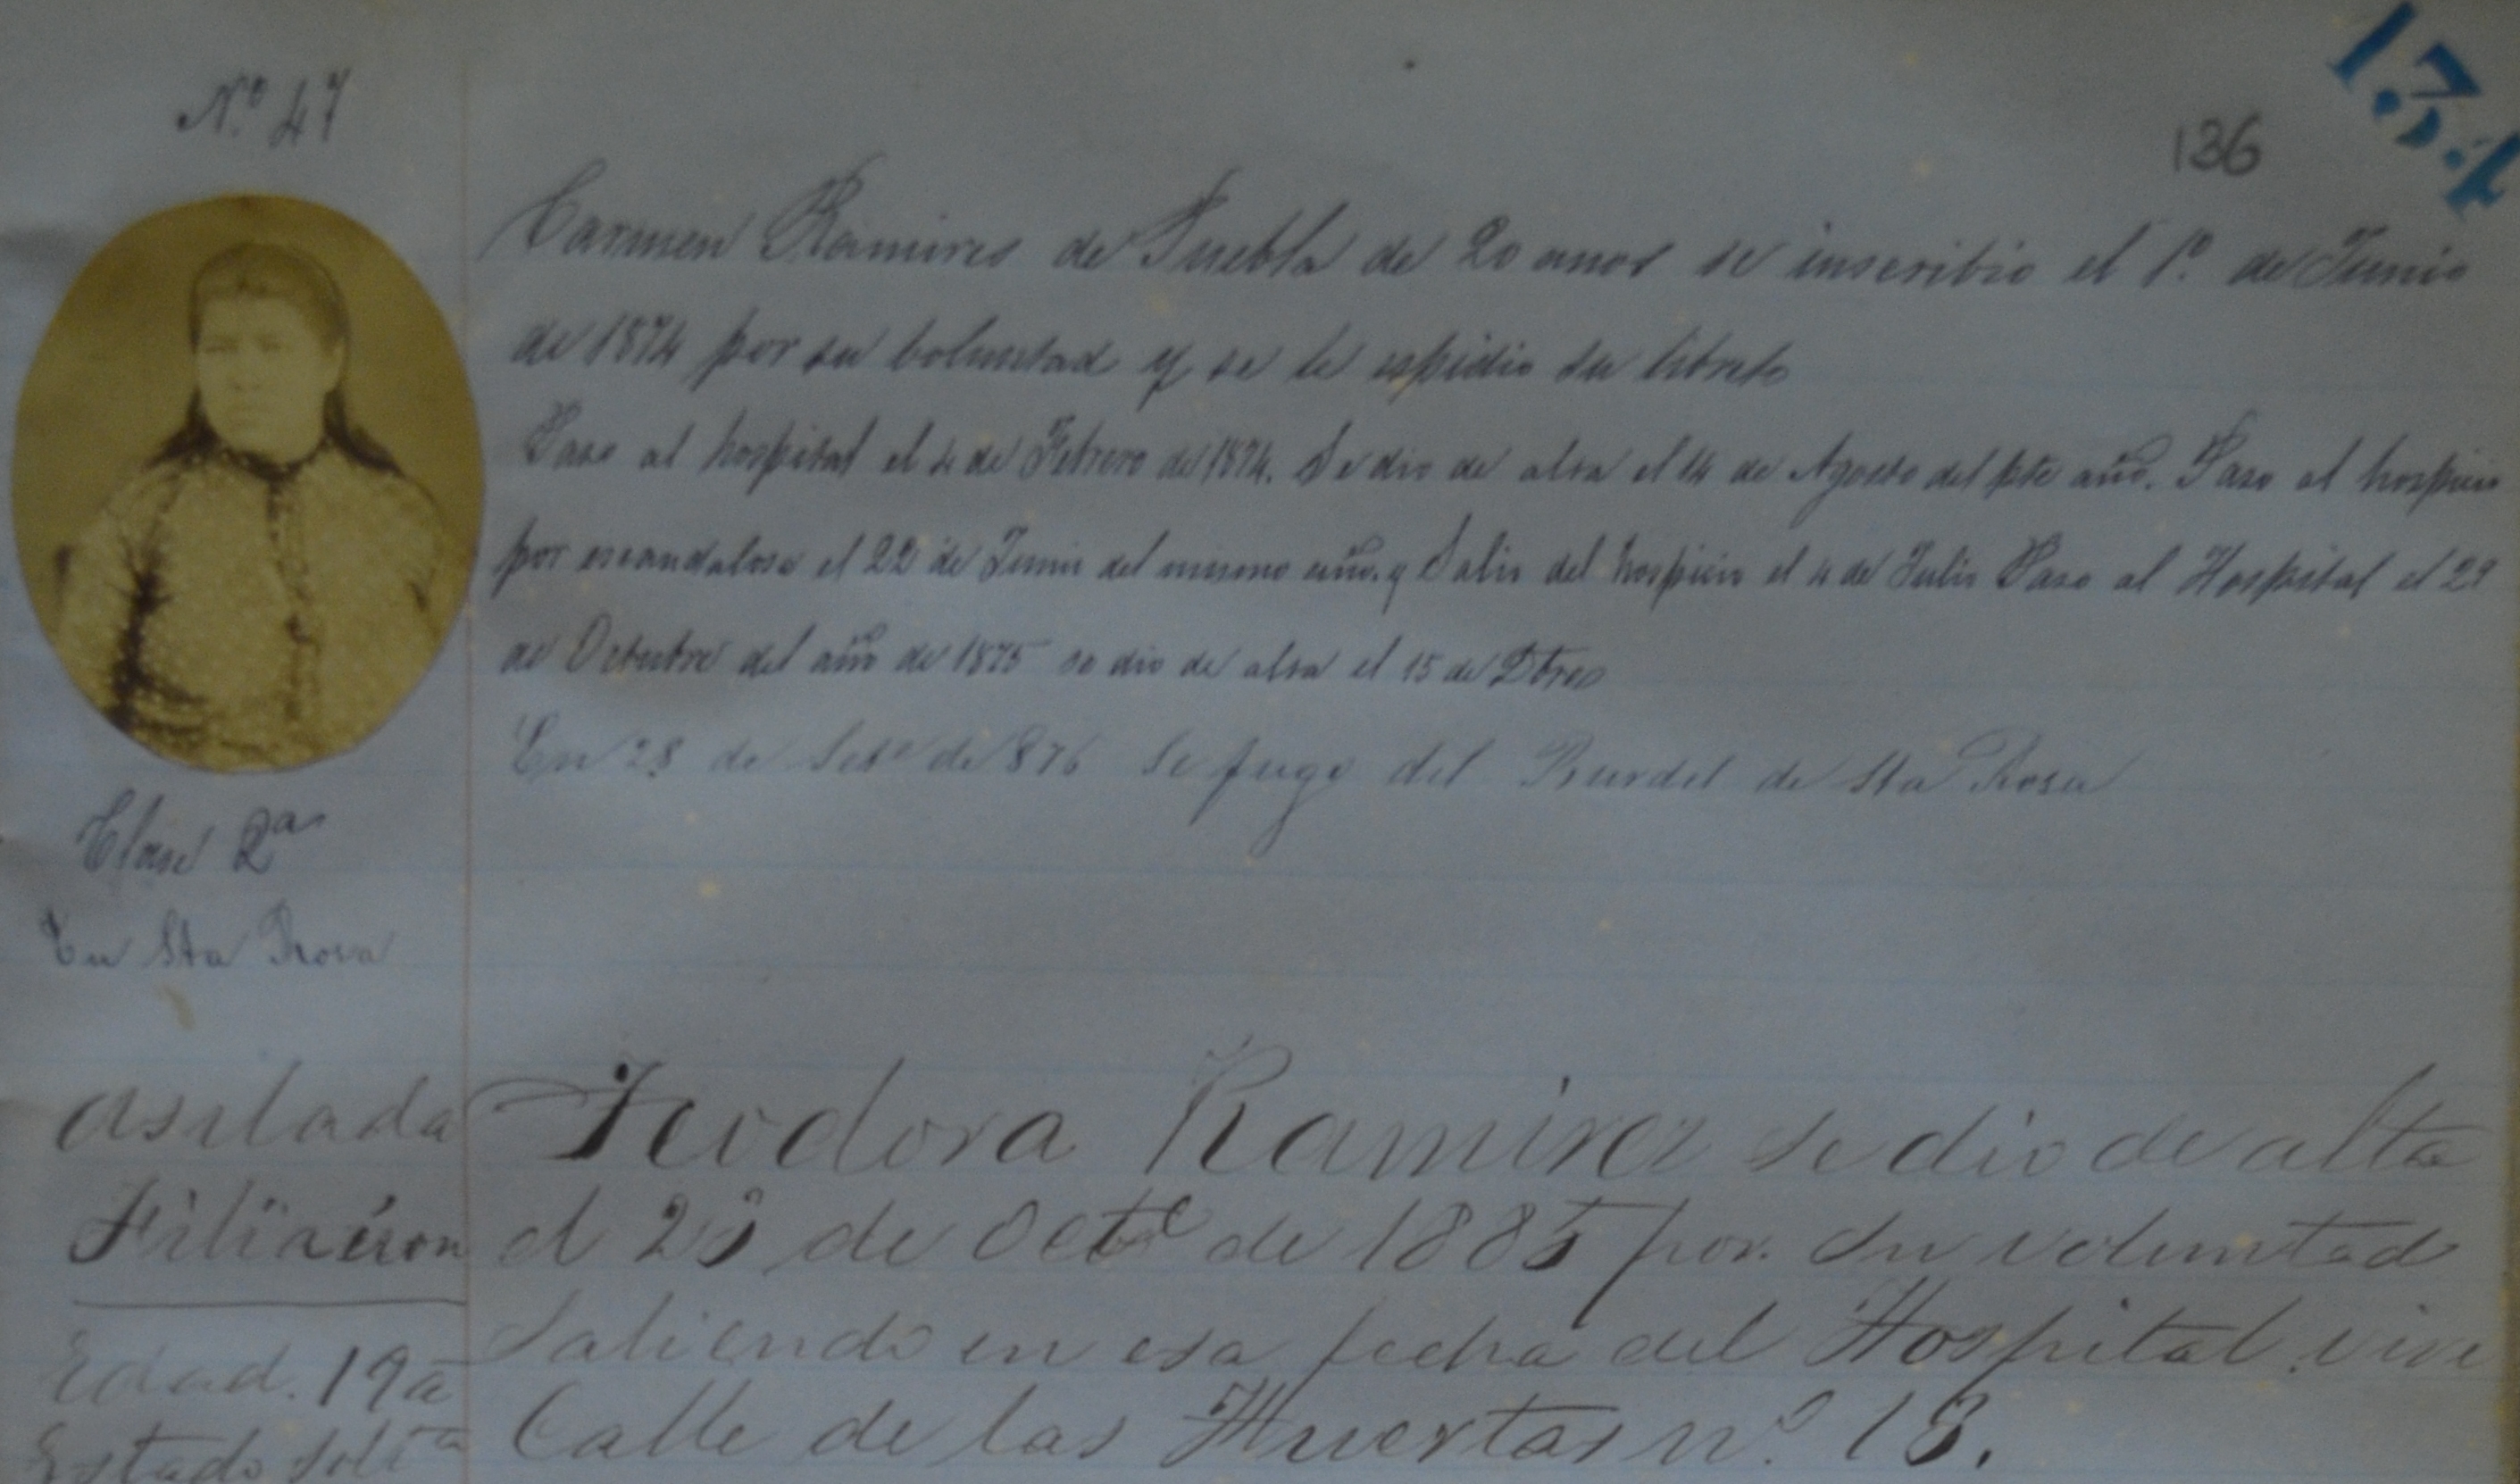 Nº 47
136
Carmen Ramires de Puebla de 20 anos se inscribio el 1º de Junio
de 1874 por su boluntad y se le espidio su libreto
Paso al hospital el 4 de Febrero de 1874. Se dio de alta el 14 de Agosto del pte año. Paso al hospicio
por escandalosa el 22 de Junio del mismo año. y Salio del hospicio el 4 de Julio Paso al Hospital el 29
de Octubre del año de 1875 se dio de alta el 15 de Dbre
En 28 de Sete de 876 se fugo del Burdel de Sta Rosa
Clase 2a
En Sta Rosa
Asilada
Filiacion
Edad. 19 a
Estado Solta
Teodora Ramirez se dio de alta
el 23 de Octe de 1885 por su voluntad
Saliendo en esa fecha del Hospital. vive
Calle de las Huertas nº. 13.